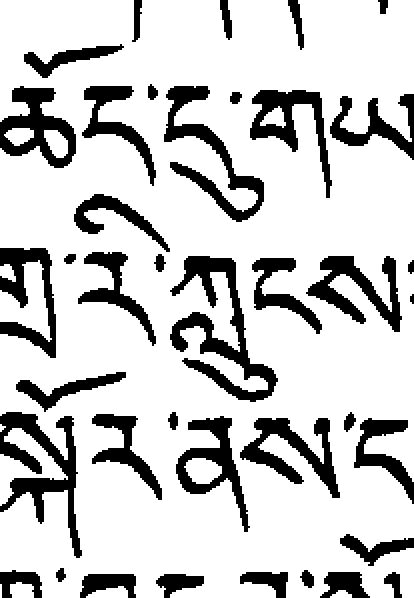 ཆོད་དུ་གཡ
གྲ་རི་ཀླུངས་
སྐོར་ནས་ད